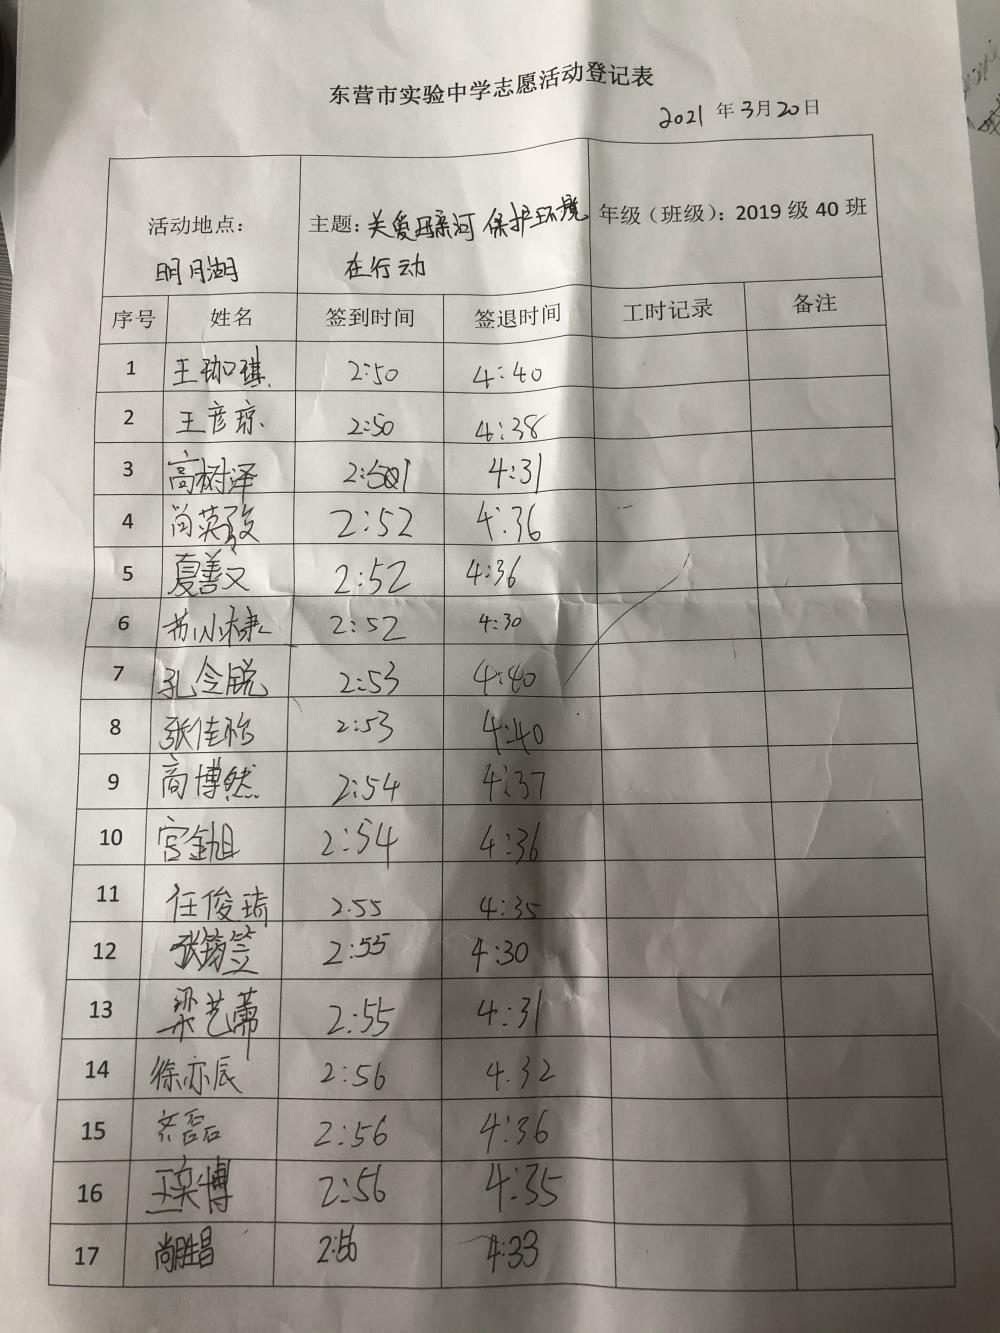 东营市实验中学志愿活动登记表
2021 年 3月 20 日
活动地点：
明月湖
主题：关爱母亲河 保护环境
在行动
年级（班级）：2019 级 40 班
序号 姓名 签到时间 签退时间 工时记录 备注
1 王珈琪 2:50 4:40
2 王彦琼 2:50 4:38
3 高树泽 2:51 4:31
4 尚英 2:52 4:36
5 夏善文 2:52 4:36
6 苏小棣 2:52 4:30
7 孔令锐 2:53 4:40
8 张佳怡 2:53 4:40
9 商博然 2:54 4:37
10 宫 2:54 4:36
11 任俊琦 2:55 4:35
12 张 2:55 4:30
13 梁艺蒂 2:55 4:31
14 徐亦辰 2:56 4:32
15 齐磊 2:56 4:36
16 王奕博 2:56 4:35
17 尚胜昌 2:56 4:33